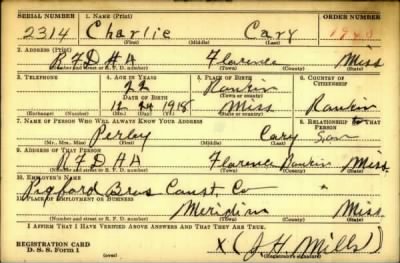 SERIAL NUMBER 1. NAME (Print) ORDER NUMBER
2314 Charlie Cary
(First) (Middle) (Last)
2. ADDRESS (Print)
RFD #4 Florence Miss
(Number and street or R. F. D. number) (Town) (County) (State)
3. TELEPHONE 4. AGE IN YEARS 5. PLACE OF BIRTH 6. COUNTRY OF CITIZENSHIP
22 Rankin
DATE OF BIRTH (Town or county)
12 24 1918 Miss Rankin
(Exchange) (Number) (Mo.) (Day) (Yr.) (State or country)
7. NAME OF PERSON WHO WILL ALWAYS KNOW YOUR ADDRESS 8. RELATIONSHIP TO THAT PERSON
Perley Cary Son
(Mr., Mrs., Miss) (First) (Middle) (Last)
9. ADDRESS OF THAT PERSON
RFD #4 Florence Rankin Miss.
(Number and street or R. F. D. number) (Town) (County) (State)
10. EMPLOYER'S NAME
Rigford Bros Const Co
11. PLACE OF EMPLOYMENT OR BUSINESS
Meridian Miss
(Number and street or R. F. D. number) (Town) (County) (State)
I AFFIRM THAT I HAVE VERIFIED ABOVE ANSWERS AND THAT THEY ARE TRUE.
REGISTRATION CARD
D. S. S. Form 1
X (J H Mills)
(Registrant's signature)